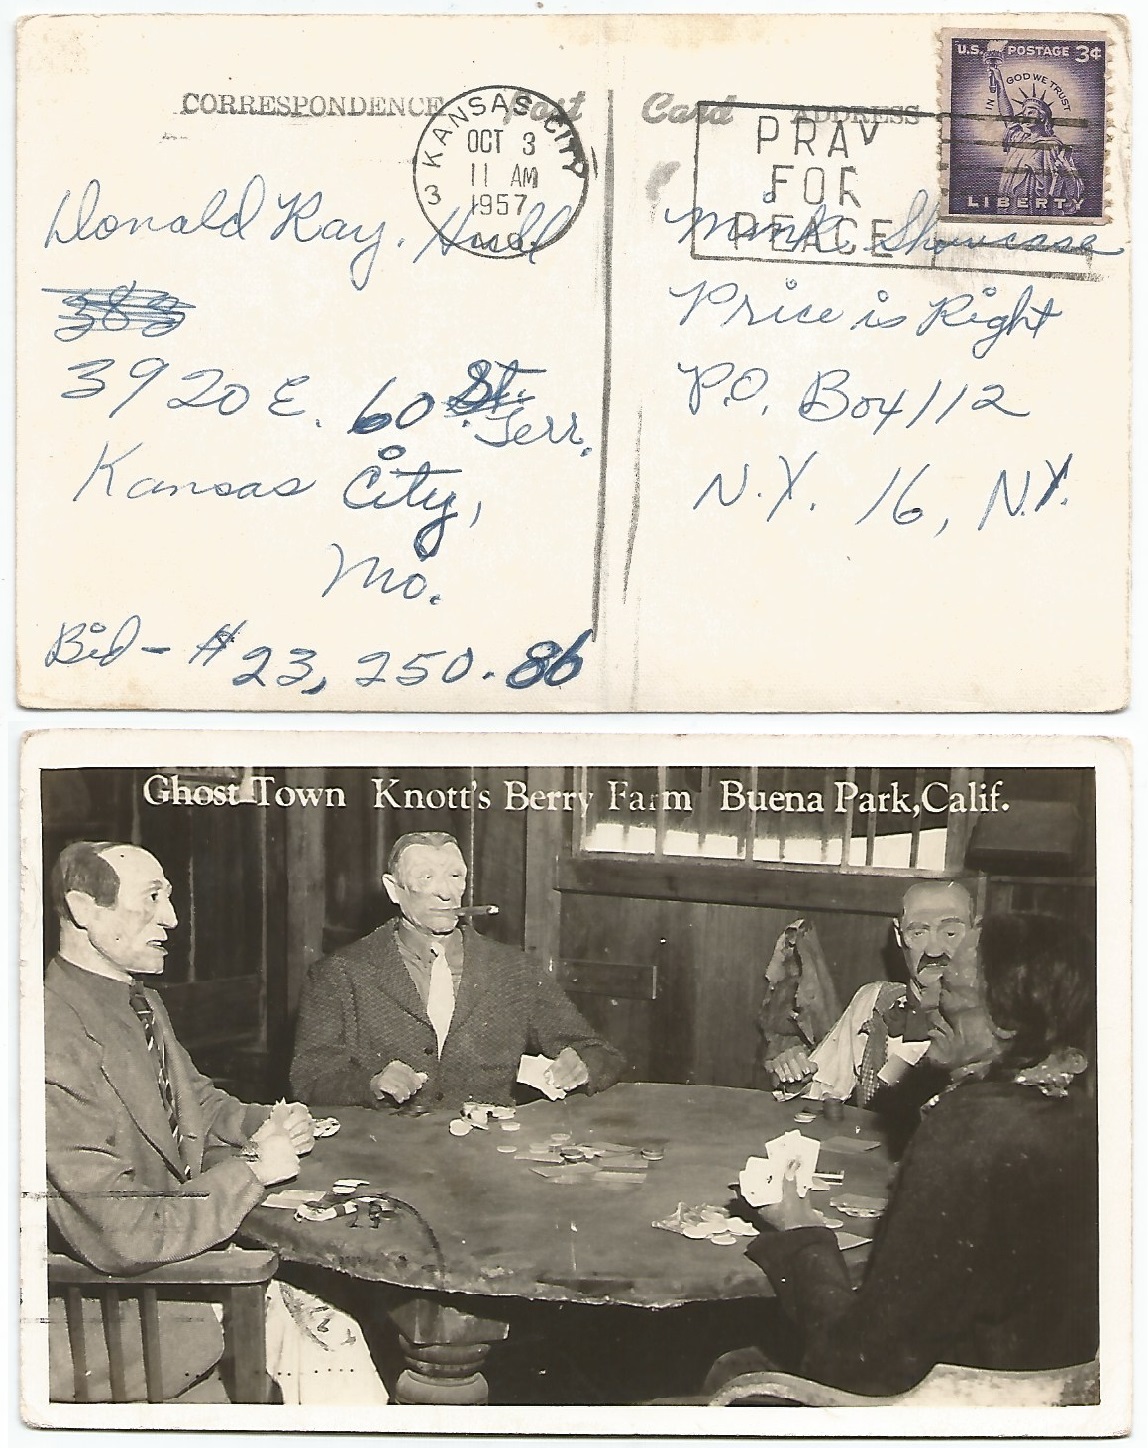 CORRESPONDENCE Post Card ADDRESS
U.S. POSTAGE 3¢
IN GOD WE TRUST
LIBERTY
KANSAS CITY
OCT 3
11 AM
1957
3
MO.
PRAY
FOR
PEACE
Donald Ray. Hull
383
3920 E. 60 St. Terr.
Kansas City,
Mo.
Bid - $23,250.86
Mink Showcase
Price is Right
P.O. Box 112
N.Y. 16, N.Y.
Ghost Town Knott's Berry Farm Buena Park, Calif.